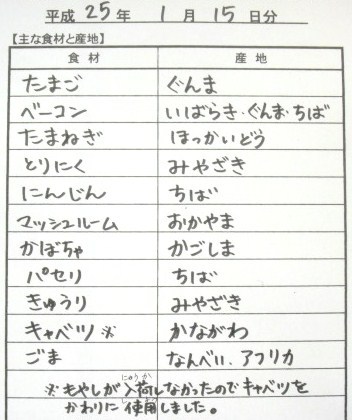 平成 25 年 1 月 15 日分
【主な食材と産地】
食材 産地
たまご ぐんま
ベーコン いばらき・ぐんま・ちば
たまねぎ ほっかいどう
とりにく みやざき
にんじん ちば
マッシュルーム おかやま
かぼちゃ かごしま
パセリ ちば
きゅうり みやざき
キャベツ ※ かながわ
ごま なんべい、アフリカ
※もやしが入荷しなかったのでキャベツを
かわりに使用しました。